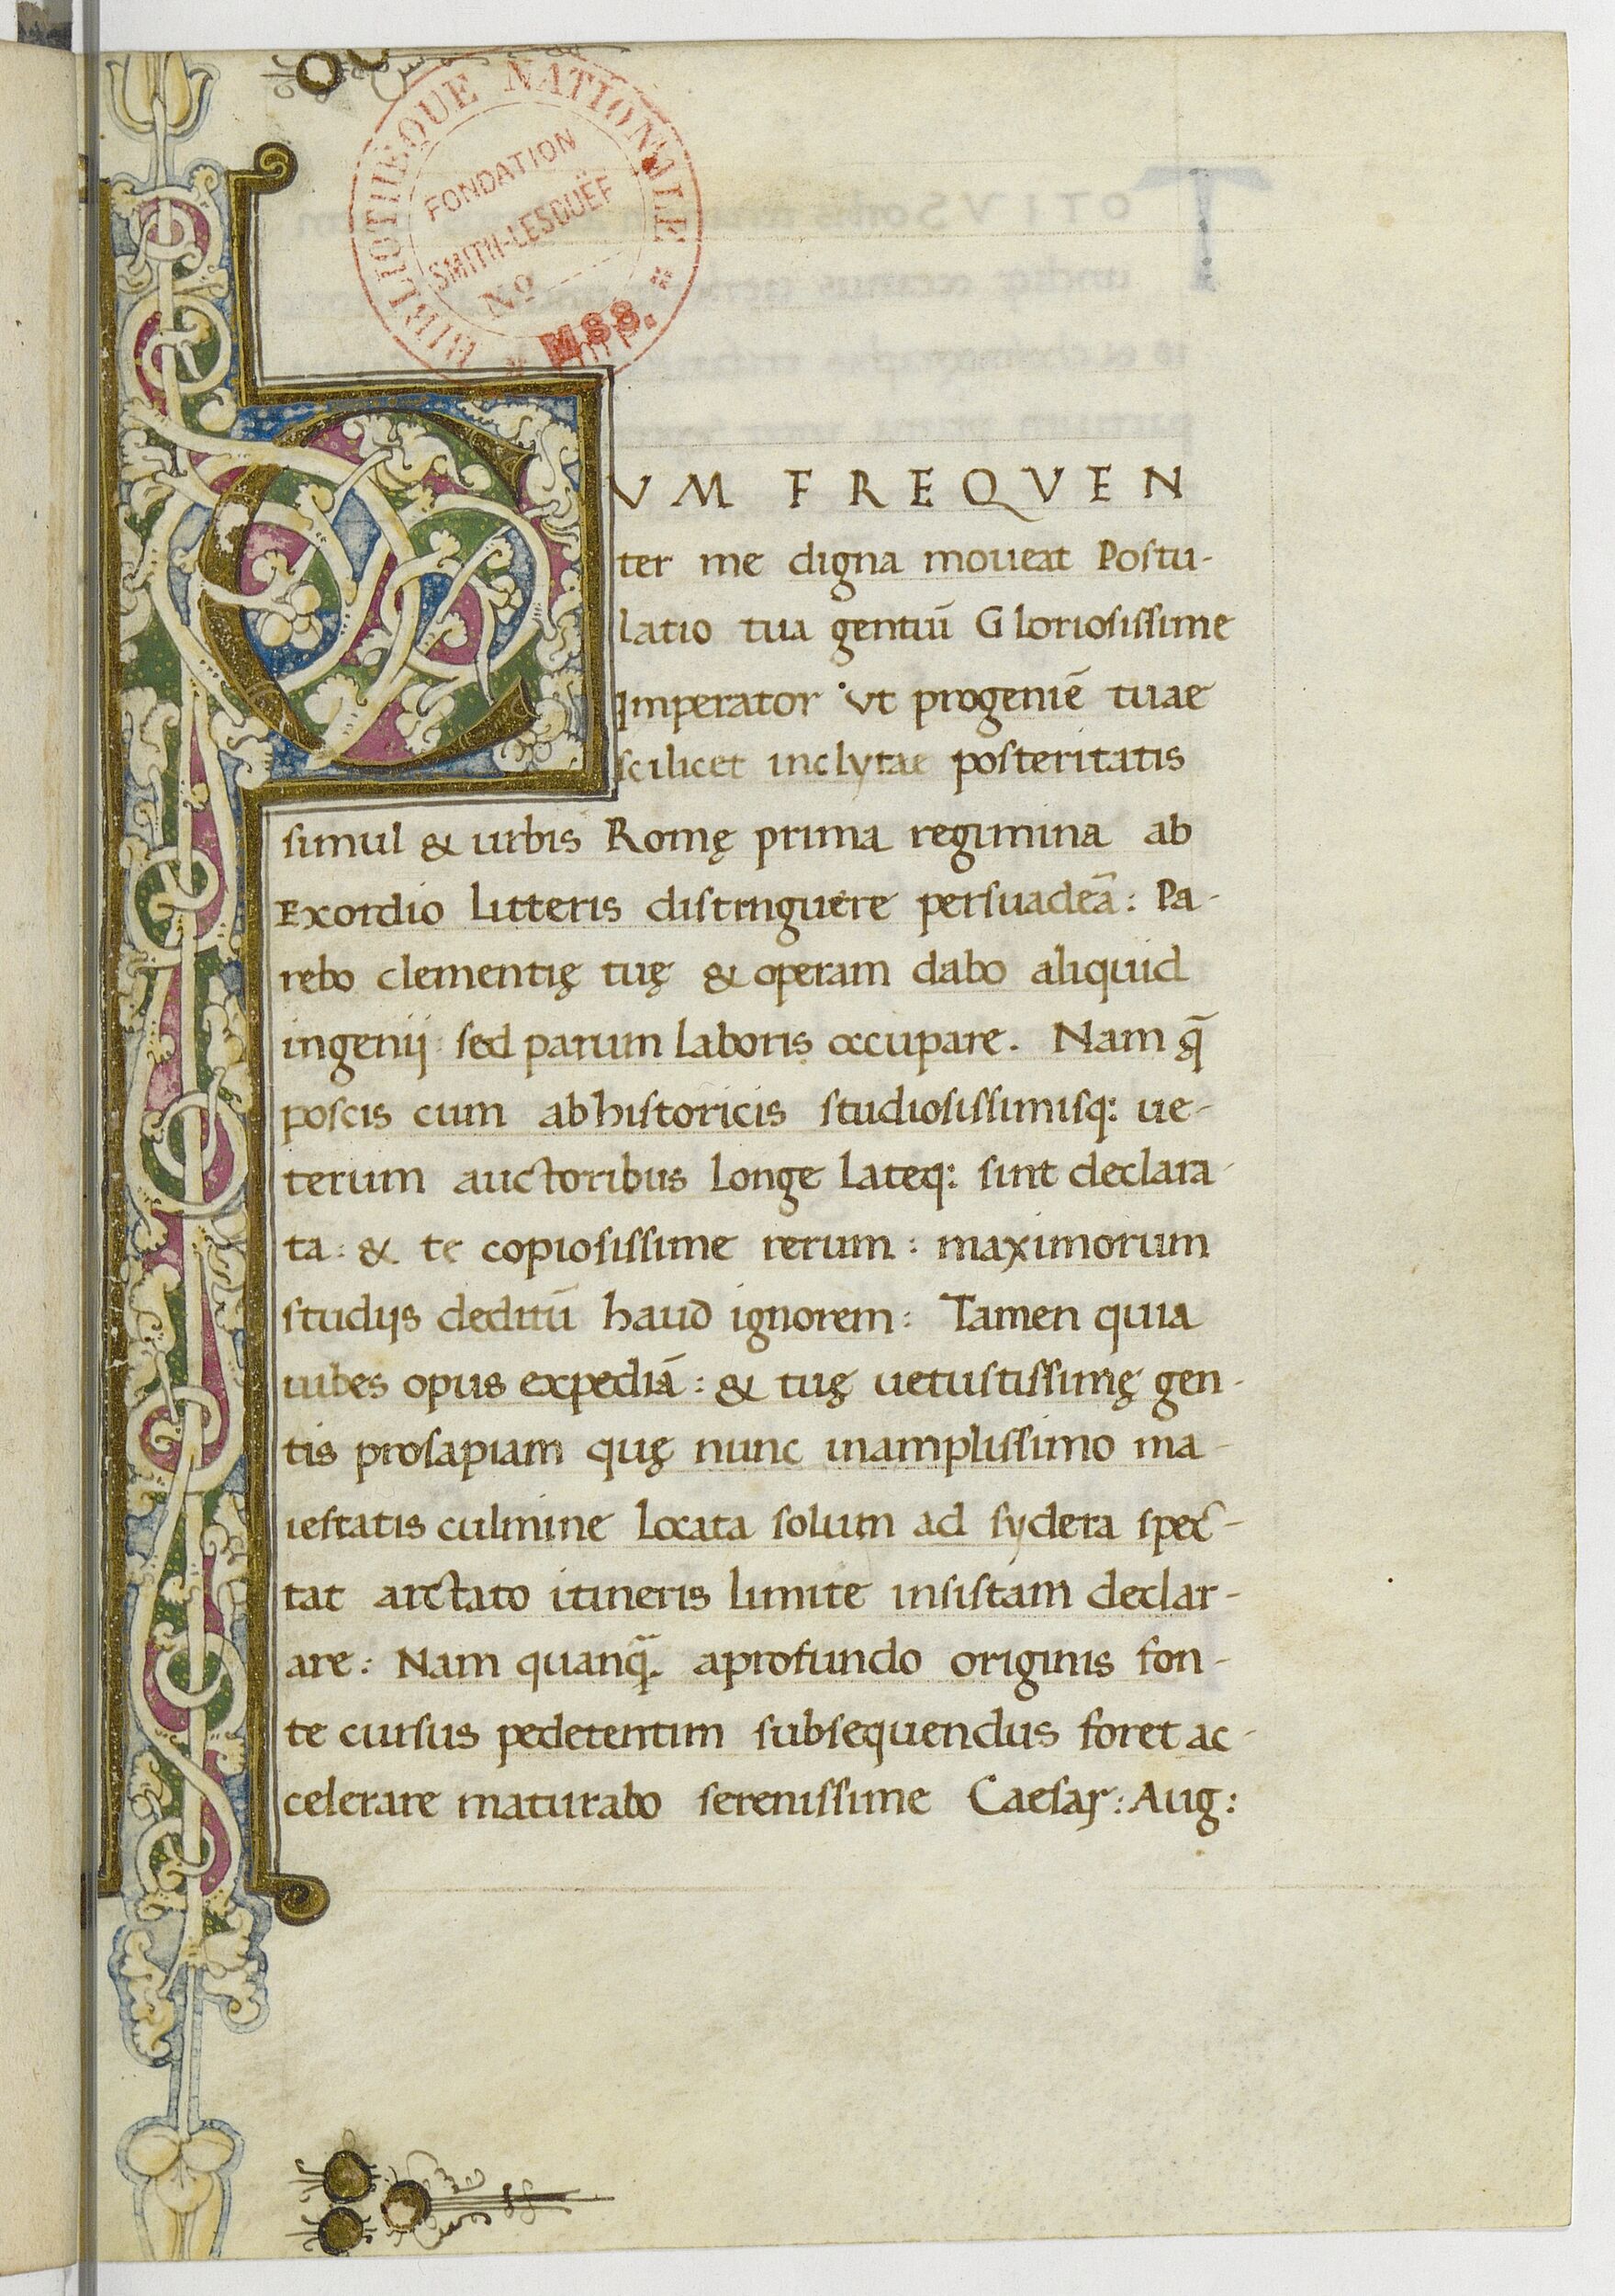 BIBLIOTHÈQUE NATIONALE
FONDATION
SMITH-LESOUËF
Nº
MSS.
CVM FREQVEN
ter me digna moueat Postu-
latio tua gentiū Gloriosissime
Imperator vt progeniē tuae
scilicet inclytae posteritatis
simul & urbis Romę prima regimina ab
Exordio litteris distinguere persuadeā: Pa-
rebo clementię tuę & operam dabo aliquid
ingenij sed parum laboris occupare. Nam q̄
poscis cum ab historicis studiosissimisq: ue-
terum auctoribus longe lateq: sint declara-
ta: & te copiosissime rerum: maximorum
studijs deditū haud ignorem: Tamen quia
iubes opus expediā: & tuę uetustissimę gen-
tis prosapiam quę nunc inamplissimo ma-
iestatis culmine locata solum ad sydera spec-
tat arctato itineris limite insistam declar-
are: Nam quanq̄. aprofundo originis fon-
te cursus pedetentim subsequendus foret ac-
celerare maturabo serenissime Caesar: Aug: